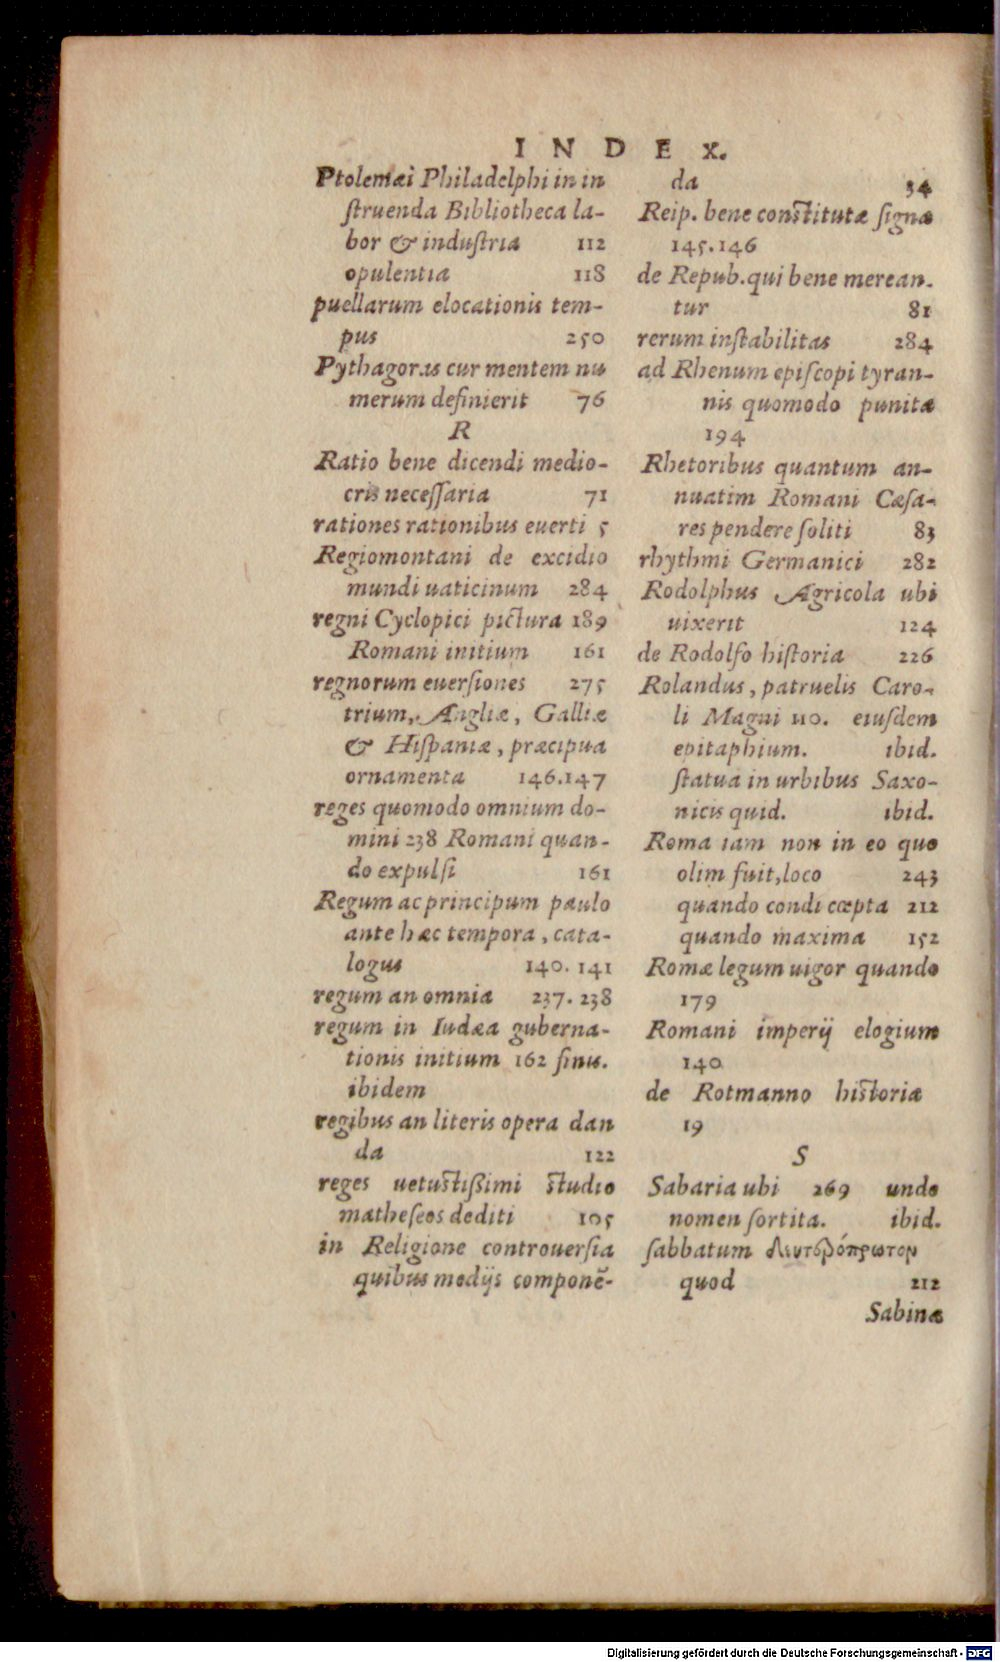 INDEX.
Ptolemæi Philadelphi in in
ſtruenda Bibliotheca la-
bor & induſtria 112
opulentia 118
puellarum elocationis tem-
pus 250
Pythagoras cur mentem nu
merum definierit 76
R
Ratio bene dicendi medio-
cris neceſſaria 71
rationes rationibus euerti 5
Regiomontani de excidio
mundi uaticinum 284
regni Cyclopici pictura 189
Romani initium 161
regnorum euerſiones 275
trium, Angliæ, Galliæ
& Hiſpaniæ, præcipua
ornamenta 146.147
reges quomodo omnium do-
mini 238 Romani quan-
do expulſi 161
Regum ac principum paulo
ante hæc tempora, cata-
logus 140. 141
regum an omnia 237. 238
regum in Iudæa guberna-
tionis initium 162 finu.
ibidem
regibus an literis opera dan
da 122
reges uetuſtißimi ſtudio
matheſeos dediti 105
in Religione controuerſia
quibus medijs componē-
da 34
Reip. bene conſtitutæ ſigna
145.146
de Repub. qui bene merean-
tur 81
rerum inſtabilitas 284
ad Rhenum epiſcopi tyran-
nis quomodo punita
194
Rhetoribus quantum an-
nuatim Romani Cæſa-
res pendere ſoliti 83
rhythmi Germanici 282
Rodolphus Agricola ubi
uixerit 124
de Rodolfo hiſtoria 226
Rolandus, patruelis Caro-
li Magni 110. eiuſdem
epitaphium. ibid.
ſtatua in urbibus Saxo-
nicis quid. ibid.
Roma iam non in eo quo
olim fuit, loco 243
quando condi cœpta 212
quando maxima 152
Romæ legum uigor quando
179
Romani imperij elogium
140
de Rotmanno hiſtoria
19
S
Sabaria ubi 269 unde
nomen ſortita. ibid.
ſabbatum δευτερόπρωτον
quod 212
Sabinæ
Digitalisierung gefördert durch die Deutsche Forschungsgemeinschaft - DFG